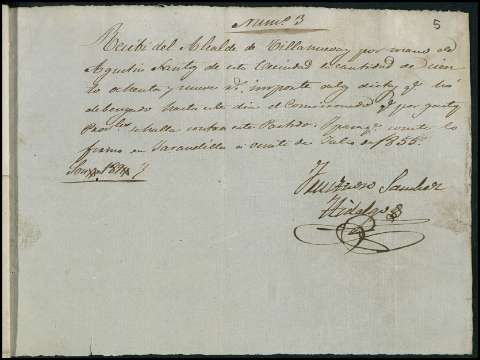 Num.o 3
5
Recibi del Alcalde de Villanueva, por mano de
Agustin Santos de esta Vecindad la cantidad de cien
to ochenta y nueve rs. importe de las dietas qe. ha
debengado hasta este dia el Comisionado qe. por gastos
Prov.les se halla contra este Partido. Y para qe. conste lo
firmo en Jarandilla a veinte de Julio de 1855.
Son
Sanchez
Hidalgo